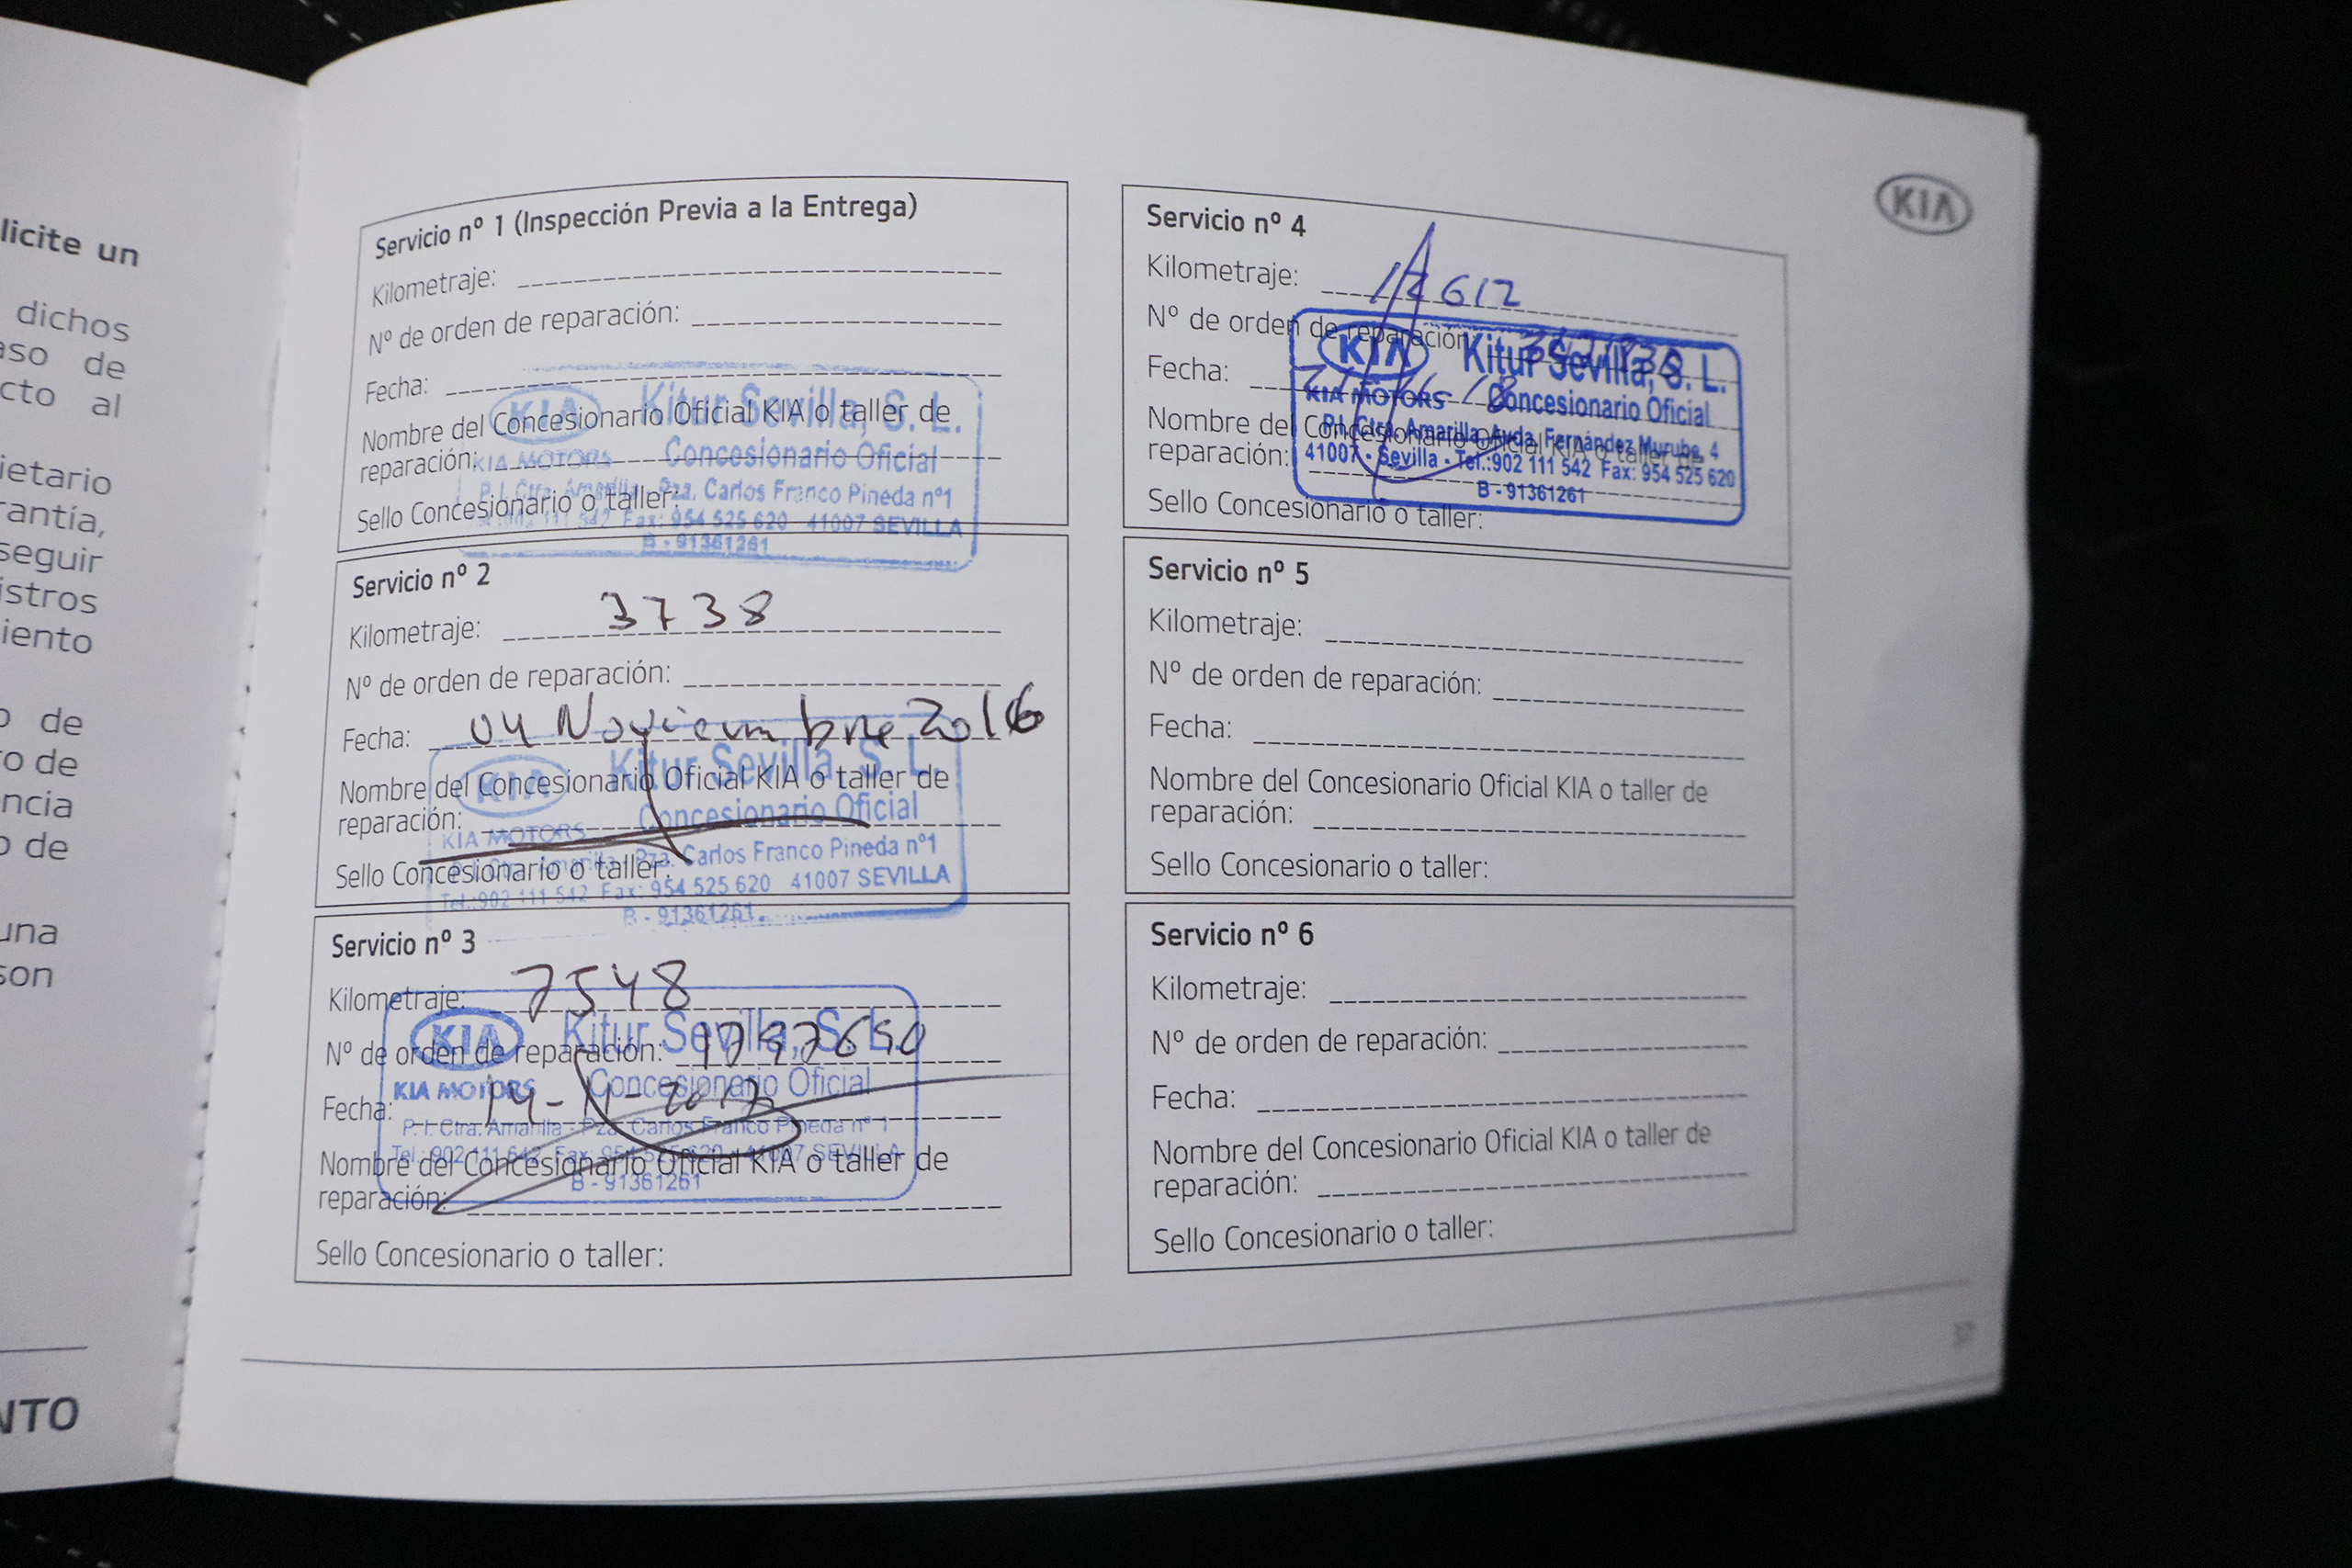 licite un
dichos
aso de
cto al
ietario
rantía,
seguir
istros
iento
o de
ro de
ncia
o de
una
son
NTO
KIA
Servicio nº 1 (Inspección Previa a la Entrega)
Kilometraje:
Nº de orden de reparación:
Fecha:
Nombre del Concesionario Oficial KIA o taller de
reparación:
Sello Concesionario o taller:
KIA Kitur Sevilla, S. L.
KIA MOTORS Concesionario Oficial
P. I. Ctra. Amarilla - Pza. Carlos Franco Pineda nº1
Tel.:902 111 542 Fax: 954 525 620 41007 SEVILLA
B - 91361261
Servicio nº 2
Kilometraje: 3738
Nº de orden de reparación:
Fecha: 04 Noviembre 2016
Nombre del Concesionario Oficial KIA o taller de
reparación:
Sello Concesionario o taller:
KIA Kitur Sevilla, S. L.
KIA MOTORS Concesionario Oficial
P. I. Ctra. Amarilla - Pza. Carlos Franco Pineda nº1
Tel.:902 111 542 Fax: 954 525 620 41007 SEVILLA
B - 91361261
Servicio nº 3
Kilometraje: 7548
Nº de orden de reparación:
Fecha: 14-11-2017
Nombre del Concesionario Oficial KIA o taller de
reparación:
Sello Concesionario o taller:
KIA Kitur Sevilla, S. L.
KIA MOTORS Concesionario Oficial
P. I. Ctra. Amarilla - Pza. Carlos Franco Pineda nº 1
Tel.: 902 111 542 Fax: 954 525 620 - 41007 SEVILLA
B - 91361261
Servicio nº 4
Kilometraje:
Nº de orden de reparación:
Fecha:
Nombre del Concesionario Oficial KIA o taller de
reparación:
Sello Concesionario o taller:
KIA Kitur Sevilla, S. L.
KIA MOTORS Concesionario Oficial
P.I. Ctra. Amarilla, Avda. Fernández Murube, 4
41007 - Sevilla - Tel.:902 111 542 Fax: 954 525 620
B - 91361261
Servicio nº 5
Kilometraje:
Nº de orden de reparación:
Fecha:
Nombre del Concesionario Oficial KIA o taller de
reparación:
Sello Concesionario o taller:
Servicio nº 6
Kilometraje:
Nº de orden de reparación:
Fecha:
Nombre del Concesionario Oficial KIA o taller de
reparación:
Sello Concesionario o taller: